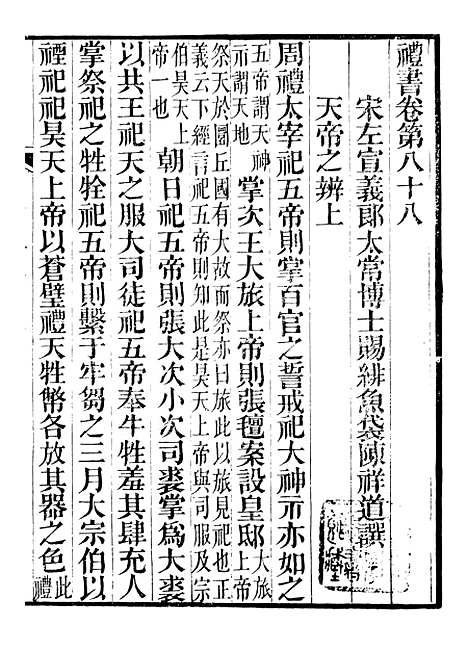 禮書卷第八十八
宋左宣義郎太常博士賜緋魚袋陳祥道撰
天帝之辨上
周禮太宰祀五帝則掌百官之誓戒祀大神示亦如之
五帝謂天神示謂天地掌次王大旅上帝則張氊案設皇邸大旅上帝
祭天於圜丘國有大故而祭亦曰旅此以旅見祀也正義云下經言祀五帝則知此是昊天上帝與司服及宗
伯昊天上帝一也朝日祀五帝則張大次小次司裘掌爲大裘
以共王祀天之服大司徒祀五帝奉牛牲羞其肆充人
掌祭祀之牲牷祀五帝則繫于牢芻之三月大宗伯以
禋祀祀昊天上帝以蒼璧禮天牲幣各放其器之色此禮